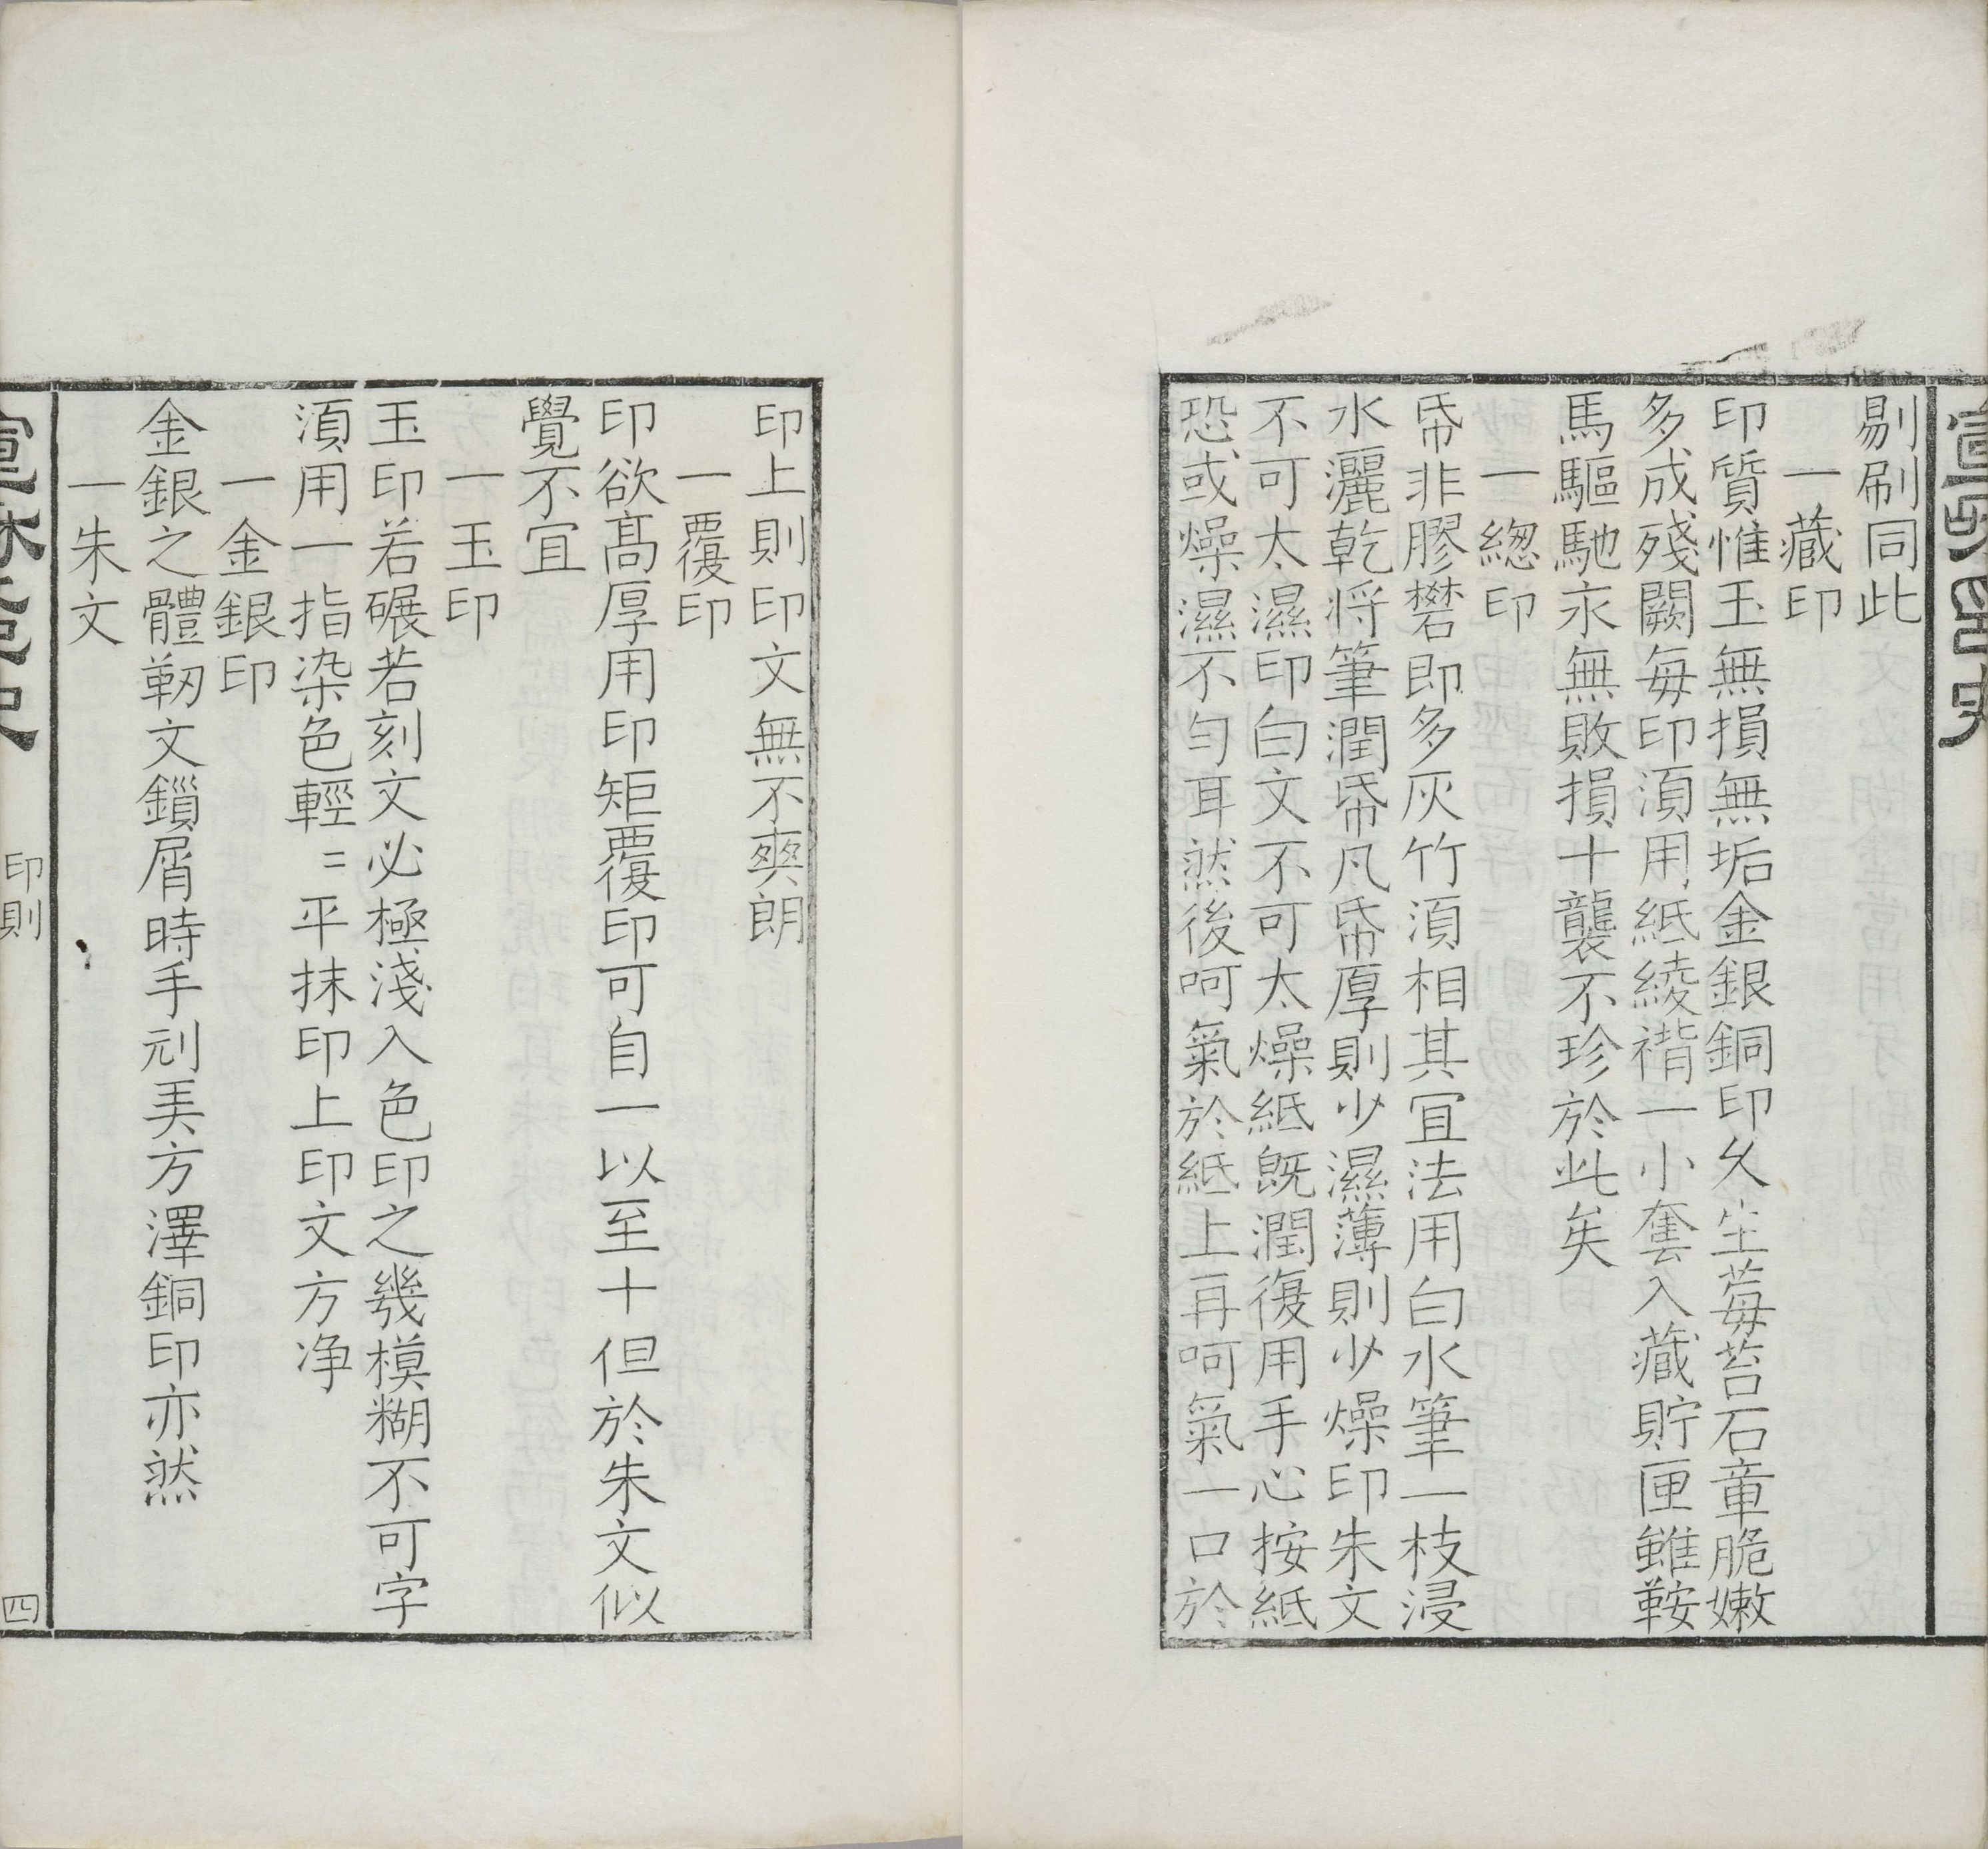 剔刷同此
一藏印
印質惟玉無損無垢金銀銅印久生莓苔石章脆嫩
多成殘闕每印湏用紙綾褙一小套入藏貯匣雖鞍
馬驅馳永無敗損十襲不珍於此矣
一緫印
帋非膠礬即多灰竹湏相其宜法用白水筆一枝浸
水灑乾将筆潤帋凡帋厚則少濕薄則少燥印朱文
不可太濕印白文不可太燥紙既潤復用手心按紙
恐或燥濕不匀耳然後呵氣於紙上再呵氣一口於
印上則印文無不爽朗
一覆印
印欲髙厚用印矩覆印可自一以至十但於朱文似
覺不宜
一玉印
玉印若碾若刻文必極淺入色印之幾模糊不可字
湏用一指染色輕〻平抹印上印文方净
一金銀印
金銀之體靭文鎻屑時手刓美方澤銅印亦然
一朱文
印則
四